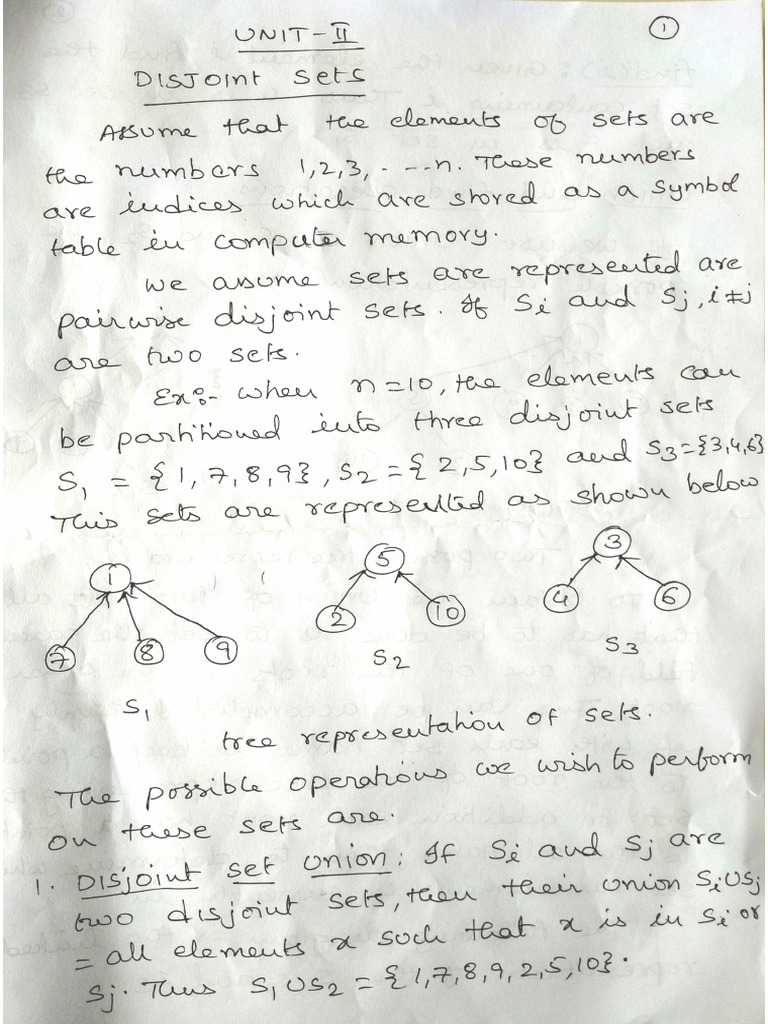 UNIT-II
1
DISJOINT SETS
Assume that the elements of sets are
the numbers 1,2,3,----n. These numbers
are indices which are stored as a symbol
table in computer memory.
we assume sets are represented are
pairwise disjoint sets. If Si and Sj, i≠j
are two sets.
Ex:- when n=10, the elements can
be partitioned into three disjoint sets
S1 = {1,7,8,9}, S2 = {2,5,10} and S3={3,4,6}
This sets are represented as shown below
1 5 3
7 8 9 2 10 4 6
S1 S2 S3
tree representation of sets.
The possible operations we wish to perform
on these sets are.
1. DISjoint set union: If Si and Sj are
two disjoint sets, then their union Si∪Sj
= all elements x such that x is in Si or
Sj. Thus S1∪S2 = {1,7,8,9,2,5,10}.